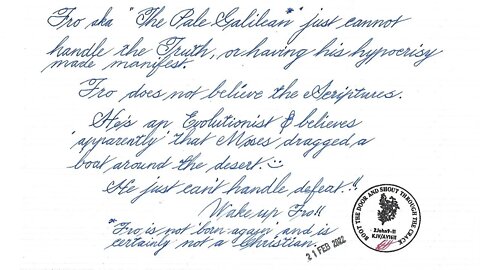 Fro aka "The Pale Galilean*" just cannot
handle the Truth, or having his hypocrisy
made manifest.
Fro does not believe the Scriptures.
He's an Evolutionist & believes
'apparently' that Moses dragged a
boat around the desert.
He just can't handle defeat!!
Wake up Fro!!
*Fro is not born again' and is
certainly not a Christian.
21 FEB 2022
BOOT THE DOOR AND SHOUT THROUGH THE CRACK
2John9-11
KJV/AV1611